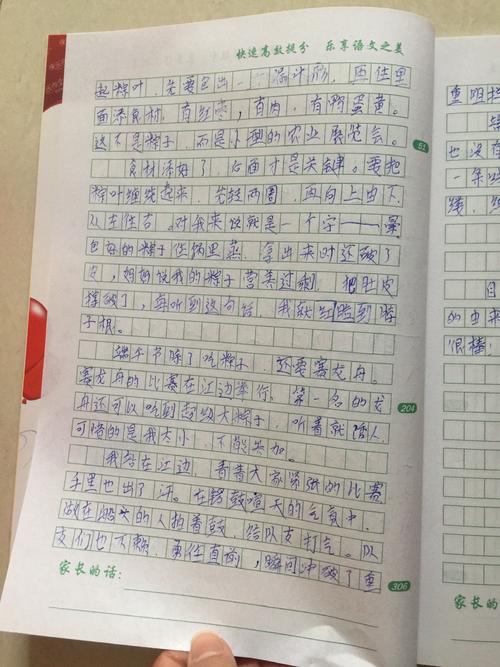 快速高效提分 乐享语文之美
起粽叶,先要包出一个漏斗形,再往里
面添食材,有红枣,有肉,有鸭蛋黄。
这不是粽子,而是小型的农业展览会。
食材添好了,后面才是关键。要把
粽叶缠绕起来,先经两圈,再向上由下,
从左往右。对我来说就是一个字——晕
包好的粽子任锅里蒸,拿出来时还破了
皮,妈妈说我的粽子营养过剩,把肚皮
撑破了,每听到这句话,我就红脸到脖
子根。
51
端午节除了吃粽子,还要赛龙舟。
赛龙舟的比赛在江边举行。第一名的龙
舟还可以吃到超级大粽子,听着就诱人,
可惜的是我太小,不能参加。
204
我站在江边,看着大家紧张的比赛
手里也出了汗。在锣鼓喧天的气氛中,
坐在船头的人拍着鼓,给队友打气。队
友们也不赖,勇往直前,瞬间冲破了重
306
家长的话:
重阻拦
也没有
一条
线,
的由来
很棒!
家长的